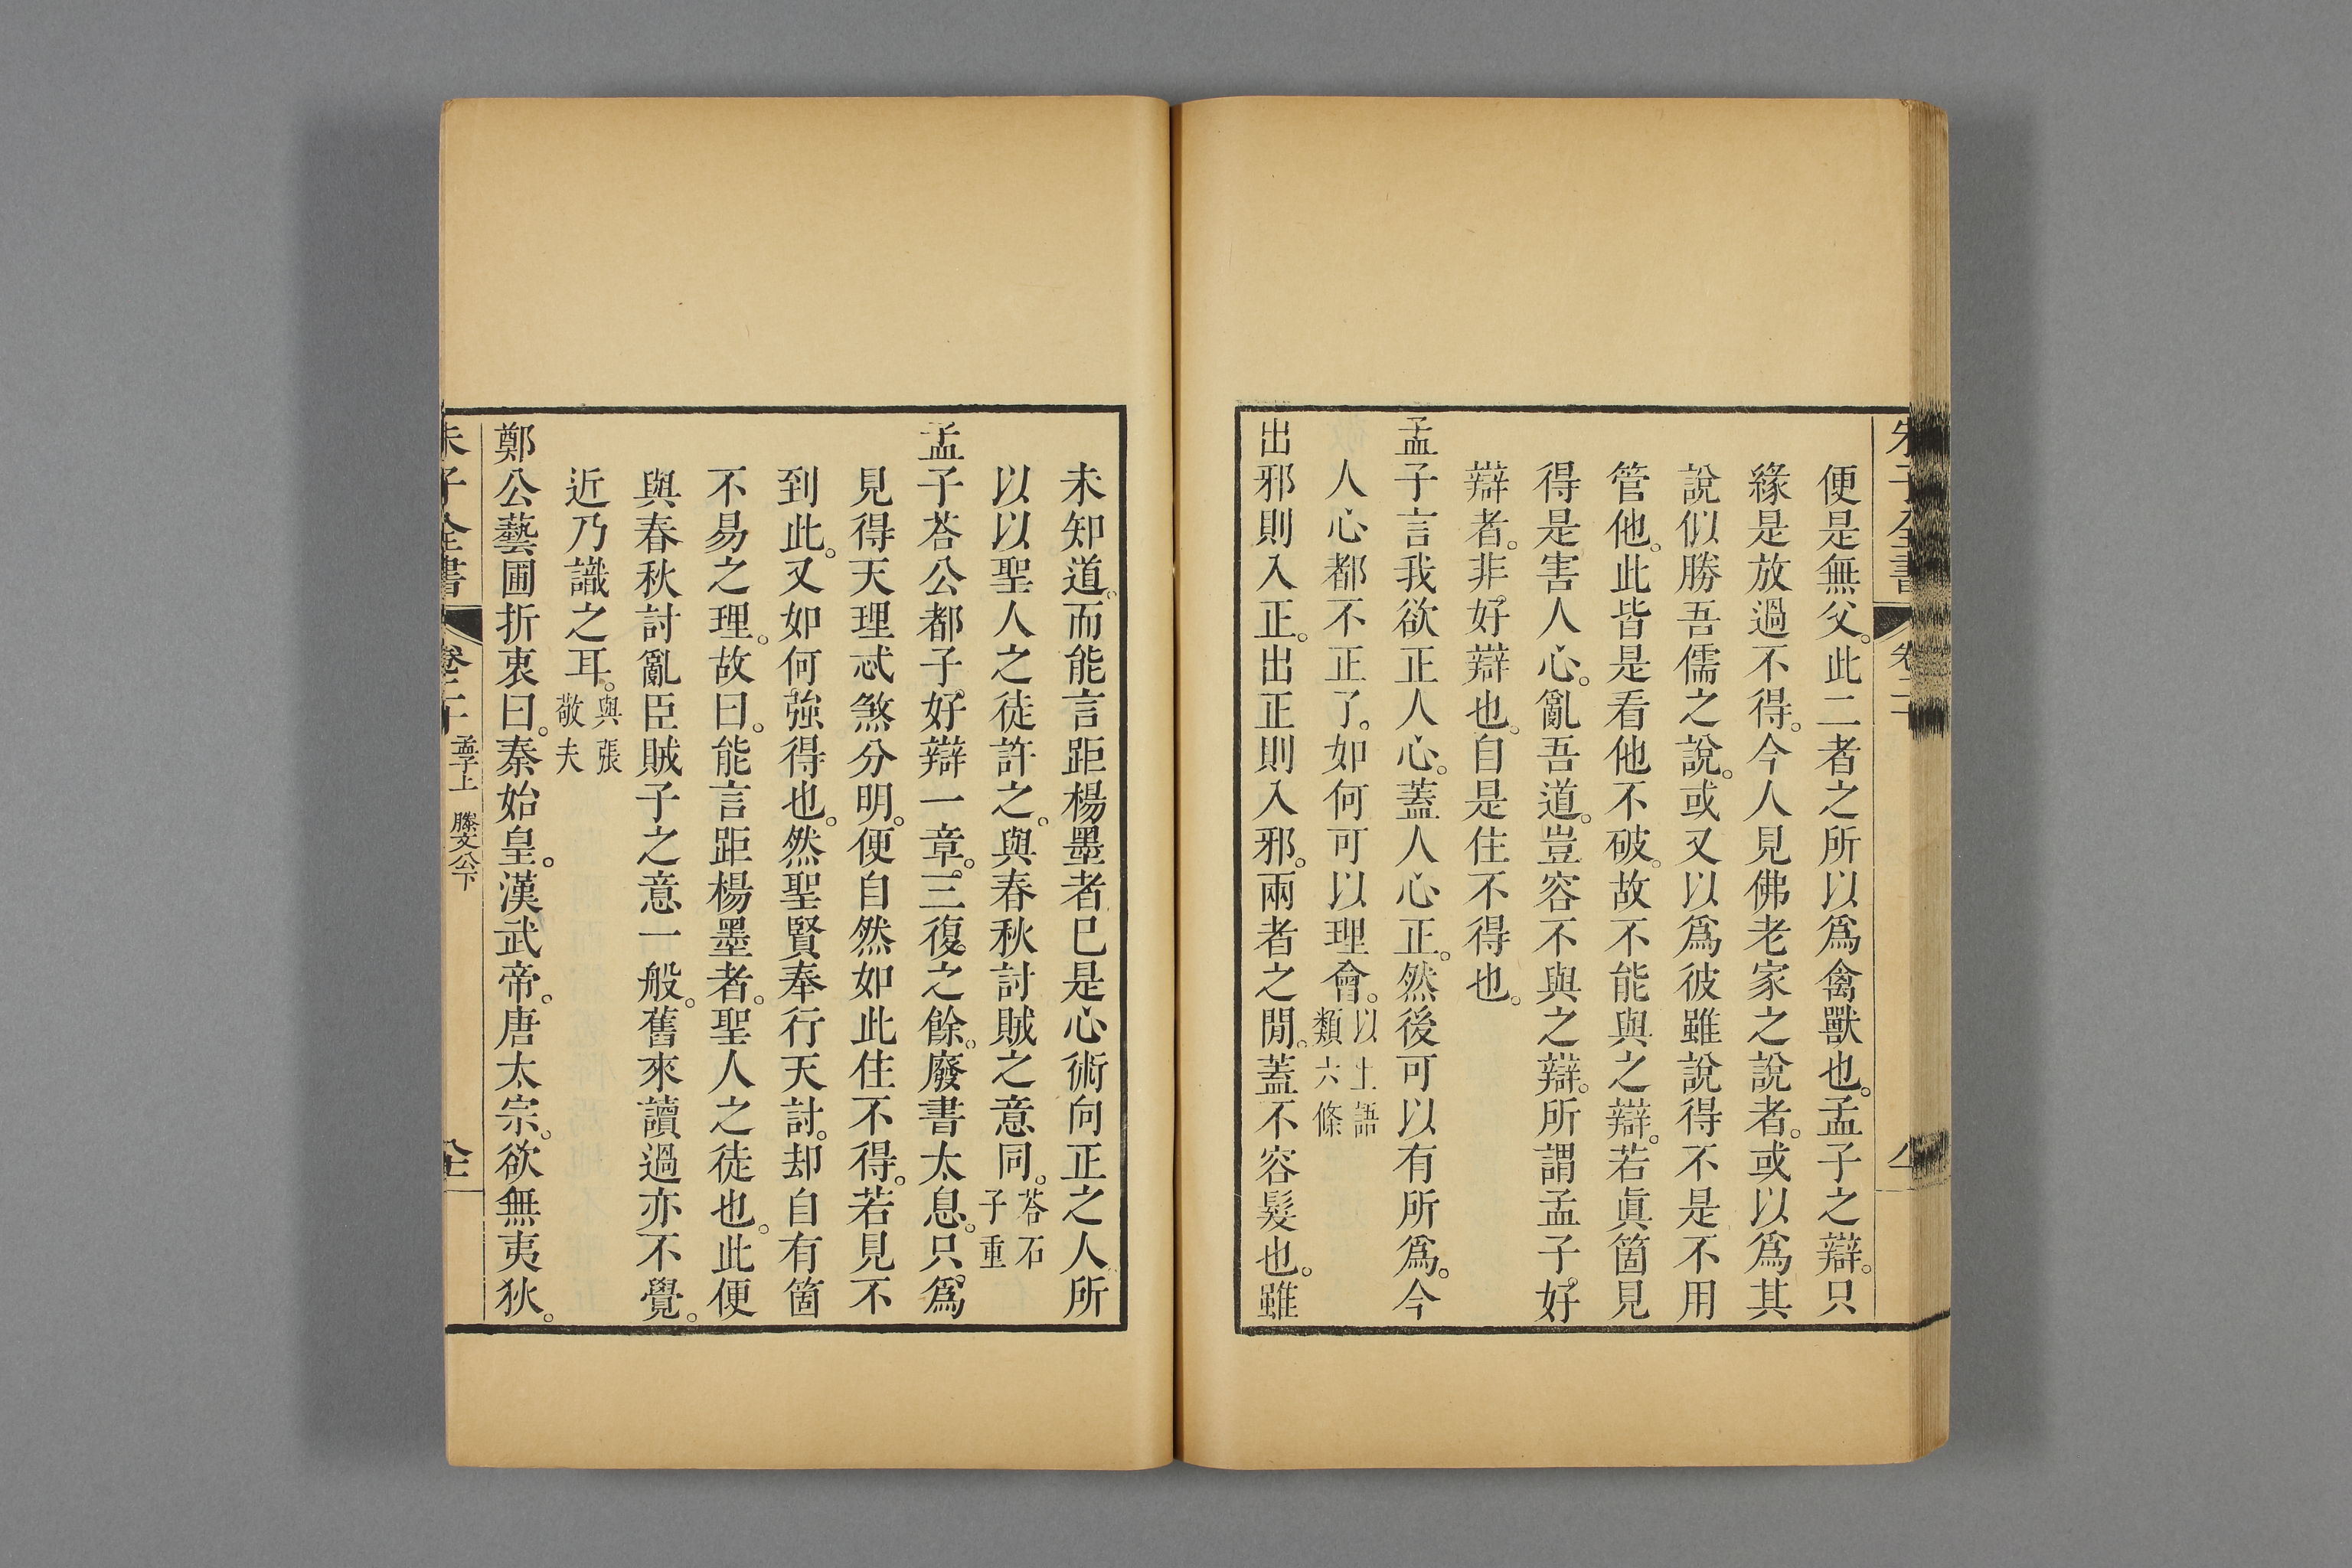 便是無父。此二者之所以爲禽獸也。孟子之辯。只
緣是放過不得。今人見佛老家之說者。或以爲其
說似勝吾儒之說。或又以爲彼雖說得不是。不用
管他。此皆是看他不破。故不能與之辯。若眞箇見
得是害人心。亂吾道。豈容不與之辯。所謂孟子好
辯者。非好辯也。自是住不得也。
孟子言我欲正人心。蓋人心正。然後可以有所爲。今
人心都不正了。如何可以理會。以上語類六條
出邪則入正。出正則入邪。兩者之閒。蓋不容髮也。雖
未知道。而能言距楊墨者已是心術向正之人所
以以聖人之徒許之。與春秋討賊之意同。荅石子重
孟子荅公都子好辯一章。三復之餘。廢書太息。只爲
見得天理忒煞分明。便自然如此住不得。若見不
到此。又如何強得也。然聖賢奉行天討。却自有箇
不易之理。故曰。能言距楊墨者。聖人之徒也。此便
與春秋討亂臣賊子之意一般。舊來讀過亦不覺。
近乃識之耳。與張敬夫
鄭公藝圃折衷曰。秦始皇。漢武帝。唐太宗。欲無夷狄。
朱子全書 卷二十 孟子上 滕文公下